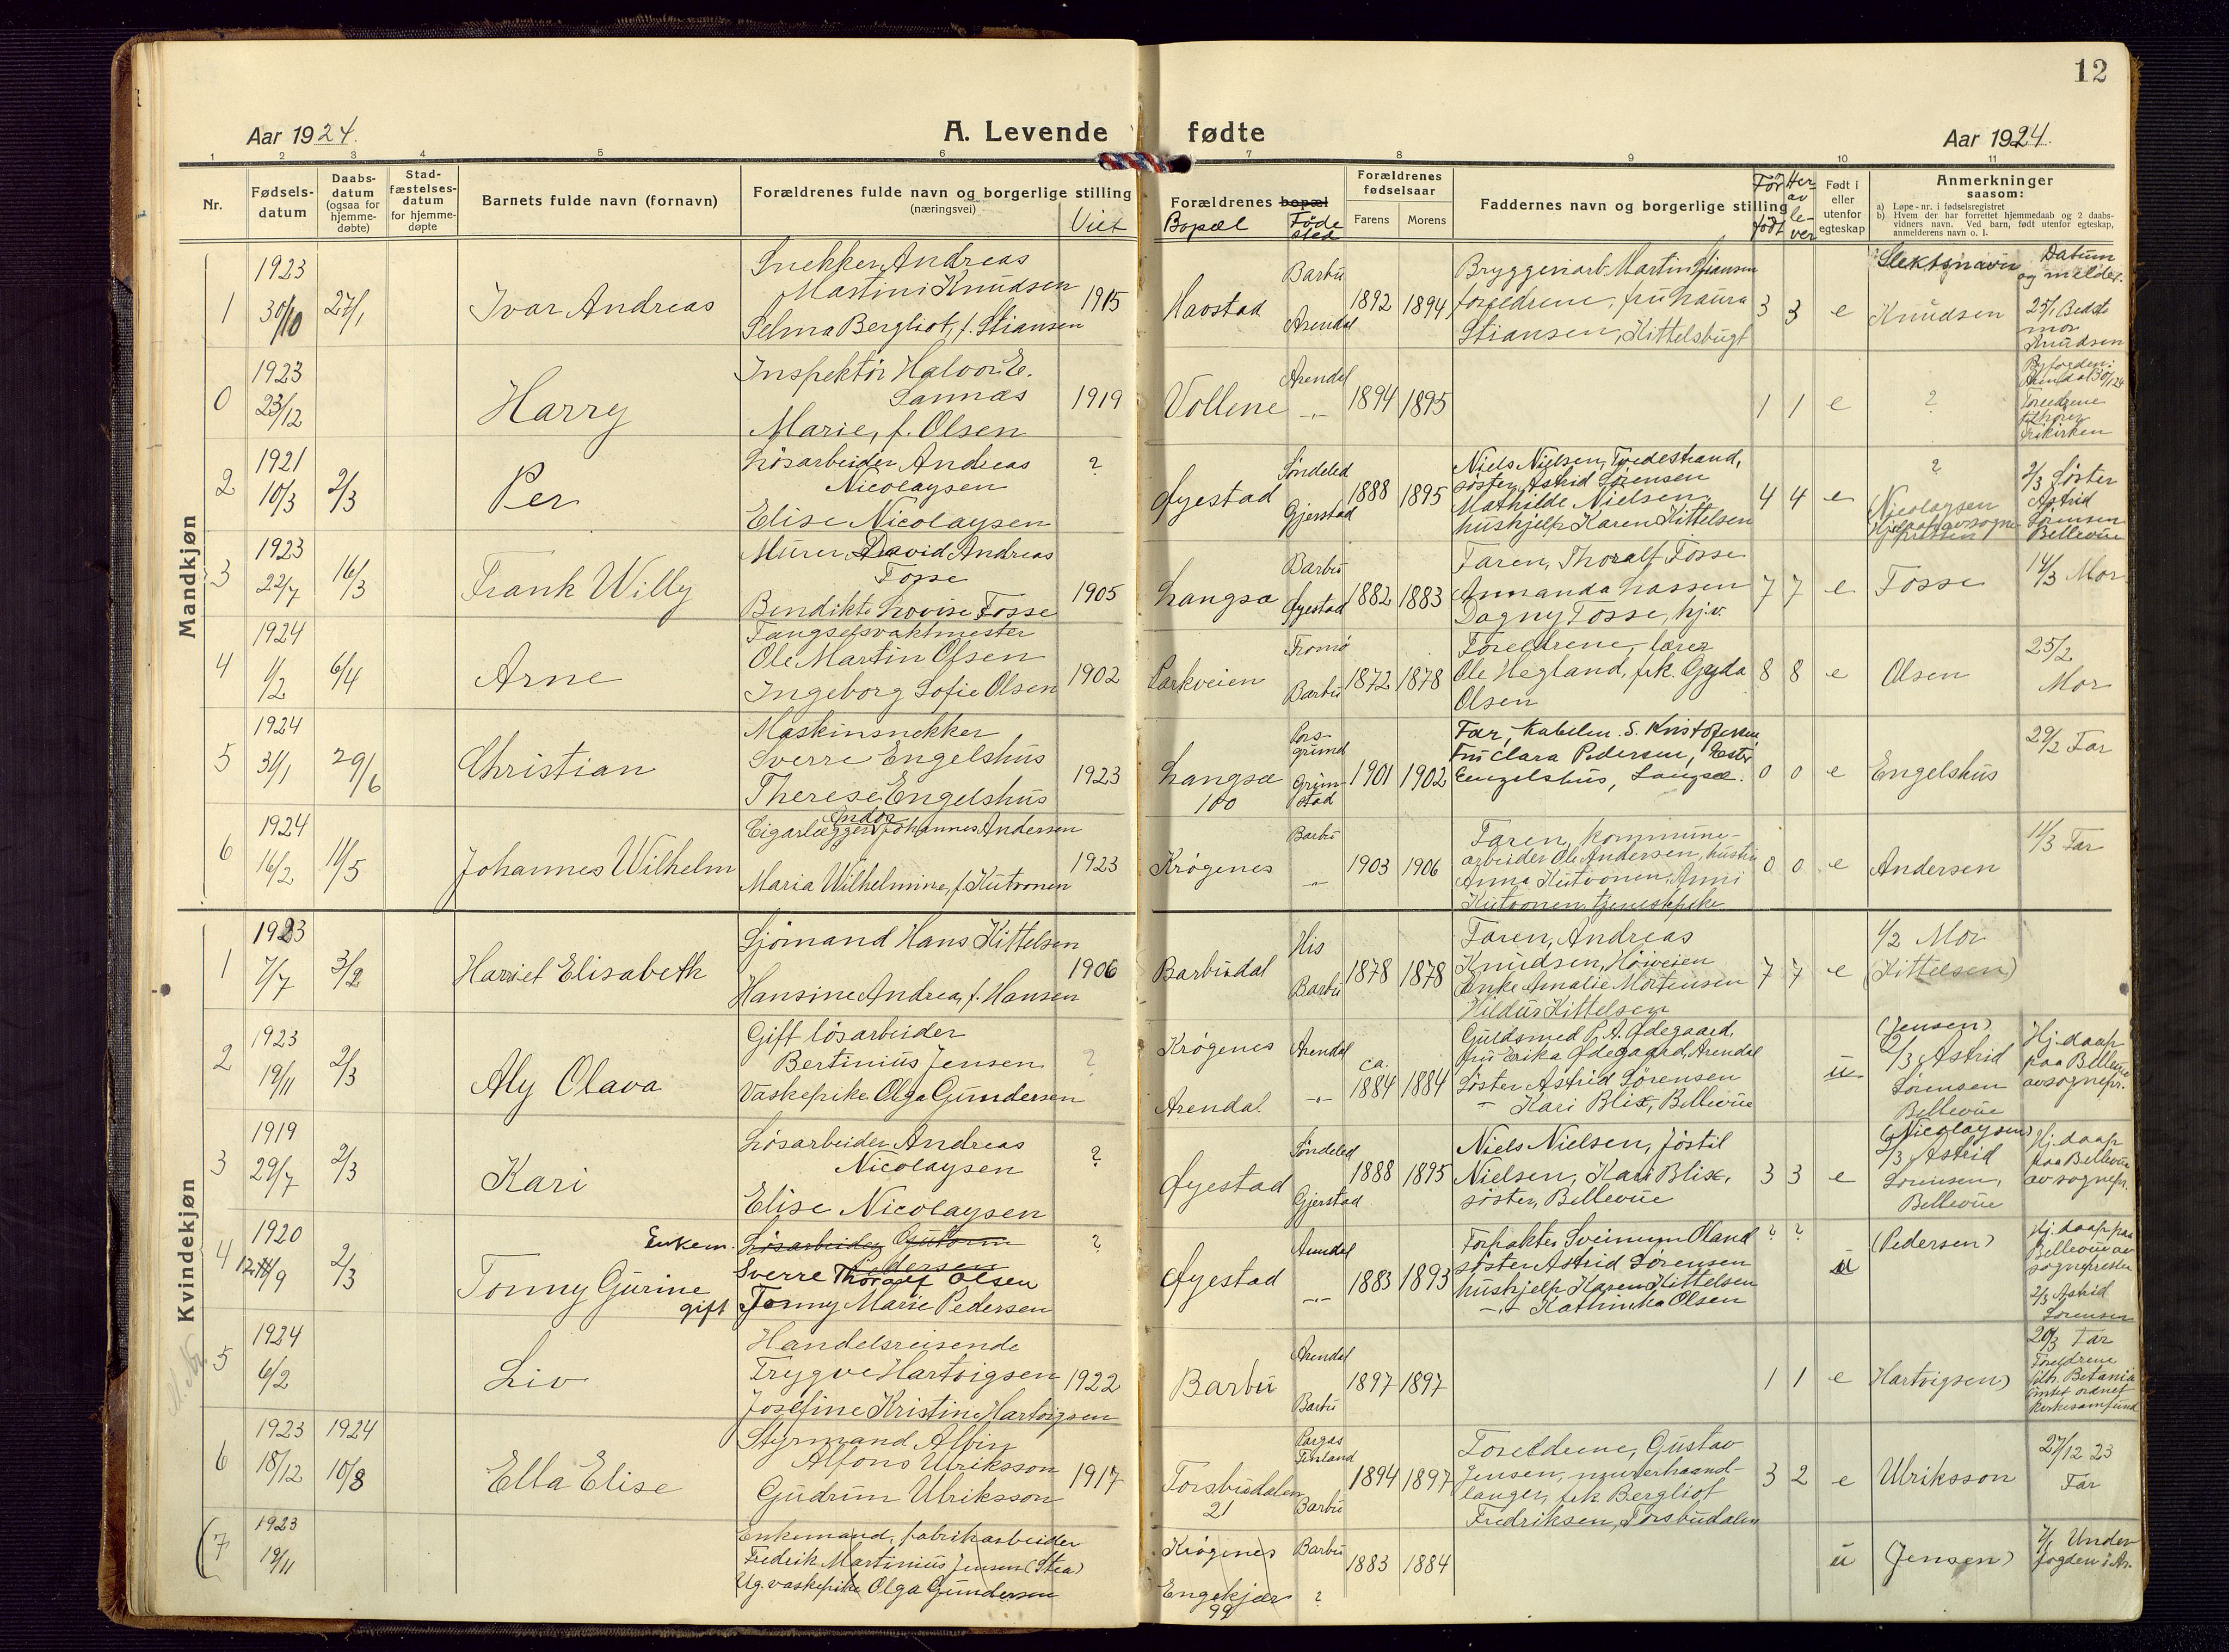 12
Aar 1924.
A. Levende fødte
Aar 1924.
1 2 3 4 5 6 7 8 9 10 11
Nr.
Fødsels-
datum
Daabs-
datum
(ogsaa for
hjemme-
døbte)
Stad-
fæstelses-
datum
for hjemme-
døpte
Barnets fulde navn (fornavn)
Forældrenes fulde navn og borgerlige stilling
(næringsvei)
Viet
Forældrenes bopæl
Bopæl
Føde
sted
Forældrenes
fødselsaar
Farens
Morens
Faddernes navn og borgerlige stilling
Før
født
Her-
av
le-
ver
Født i
eller
utenfor
egteskap
Anmerkninger
saasom:
a) Løpe-nr. i fødselsregistret
b) Hvem der har forrettet hjemmedaab og 2 daabs-
vidners navn. Ved barn, født utenfor egteskap,
anmelderens navn o. l.
Slektsnavn
Datum
og melder.
Mandkjøn
1
1923
30/10
27/1
Ivar Andreas
Snekker Andreas
Martini Knudsen
Selma Bergliot, f. Stiansen
1915
Havstad
Barbu
Arendal
1892
1894
Bryggeriarb. Martin Stiansen
foreldrene, fru Laura
Stiansen, Kittelsbugt
3
3
e
Knudsen
25/1 Bedste
mor
Knudsen
0
1923
23/12
Harry
Inspektør Halvor E.
Sannæs
Marie, f. Olsen
1919
Vollene
Arendal
-"-
1894
1895
1
1
e
?
Byfogden i
Arendal 30/1 24
Foreldrene
tilhører
Frikirken
2
1921
10/3
2/3
Per
Løsarbeider Andreas
Nicolaysen
Elise Nicolaysen
?
Øyestad
Søndeled
Gjerstad
1888
1895
Niels Nielsen, Tvedestrand,
søster Astrid Sørensen
Mathilde Nielsen,
hushjelp Karen Kittelsen
4
4
e
?
Nicolaysen
2/3 Søster
Astrid
Sørensen
Bellevue
3
1923
22/7
16/3
Frank Willy
Murer David Andreas
Fosse
Bendikte Lovise Fosse
1905
Langsæ
Barbu
Øyestad
1882
1883
Faren, Thoralf Fosse
Annanda Lassen
Dagny Fosse, hj.v.
7
7
e
Fosse
14/3 Mor
4
1924
1/2
6/4
Arne
Fangselsvaktmester
Ole Martin Olsen
Ingeborg Sofie Olsen
1902
Parkveien
Tromø
Barbu
1872
1878
Foreldrene, lærer
Ole Hegland, frk. Gyda
Olsen
8
8
e
Olsen
25/2
Mor
5
1924
31/1
29/6
Christian
Maskinsnekker
Sverre Engelshus
Therese Engelshus
1923
Langsæ
100
Pors-
grund
Grim-
stad
1901
1902
Far, kabelm. S. Kristofersen
Fru Clara Pedersen, Ester
Engelshus, Langsæ.
0
0
e
Engelshus
29/2 Far
6
1924
16/2
11/5
Johannes Wilhelm
Andor
Cigarlægger Johannes Andersen
Maria Wilhelmine, f. Kutvonen
1923
Krøgenes
Barbu
-"-
1903
1906
Faren, kommune-
arbeider Ole Andersen, hustru
Anna Kutvonen, Anni
Kutvonen, tjenestepike
0
0
e
Andersen
11/3 Far
Kvindekjøn
1
1923
7/7
3/2
Harriet Elisabeth
Sjømand Hans Kittelsen
Hansine Andrea, f. Hansen
1906
Barbudal
His
Barbu
1878
1878
Faren, Andreas
Knudsen, Høiveien
Enke Amalie Mortensen
Hildur Kittelsen
7
7
e
1/2 Mor
(Kittelsen)
2
1923
19/11
2/3
Aly Olava
Gift løsarbeider
Bertinius Jensen
Vaskepike Olga Gundersen
?
Krøgenes
Arendal.
Arendal
-"-
ca.
1884
1884
Guldsmed P. A. Ødegaard,
fru Erika Ødegaard, Arendal
Søster Astrid Sørensen
- Kari Blix, Bellevue
u
(Jensen)
2/3 Astrid
Sørensen
Bellevue
Hj. daap
paa Bellevue
av sognepr.
3
1919
29/7
2/3
Kari
Løsarbeider Andreas
Nicolaysen
Elise Nicolaysen
?
Øyestad
Søndeled
Gjerstad
1888
1895
Niels Nielsen, Jostil
Nielsen, Kari Blix,
søster, Bellevue
3
3
e
(Nicolaysen)
2/3 Astrid
Sørensen,
Bellevue
Hj. daap
paa Bellevue
av sognepr.
4
1920
2/3
Tonny Gurine
Enkem.
Løsarbeider Guttorm
Pedersen
Sverre Thoralf Olsen
gift
Tonny Marie Pedersen
?
Øyestad
Arendal
-"-
1883
1893
Forpakter Sveinung Oland
søster Astrid Sørensen
hushjelp Karen Kittelsen
-"- Kathinka Olsen
?
?
u
(Pedersen)
Hj. daap paa
Bellevue av
sognepresten
2/3 Astrid
Sørensen
5
1924
6/2
Liv
Handelsreisende
Trygve Hartvigsen
Josefine Kristine Hartvigsen
1922
Barbu
Arendal
Barbu
1897
1897
1
1
e
Hartvigsen)
20/3 Far
Foreldrene
tilh. Betania
kirkesamfund
6
1923
18/12
1924
10/8
Ella Elise
Styrmand Albin
Alfons Ulriksson
Gudrun Ulriksson
1917
Torsbudalen
21
Pargas
Finland
Barbu
1894
1897
Foreldrene, Gustav
Jensen, murerhaand-
langer, frk Bergliot
Fredriksen, Torsbudalen
3
2
e
Ulriksson
27/12 23
Far
(7
1923
19/11
Enkemand, fabrikarbeider
Fredrik Martinius Jensen (Stea)
Ug. vaskepike Olga Gundersen
Krøgenes
Engekjær
99
Barbu
?
1883
1884
u
(Jensen)
7/1 Under
fogden i Ar.